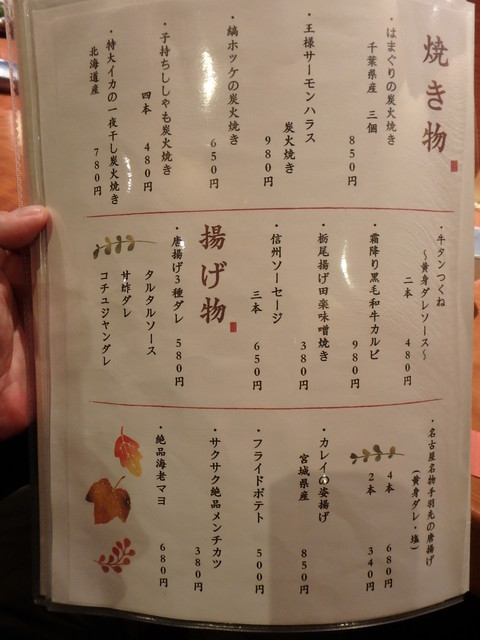 焼き物
・はまぐりの炭火焼き
千葉県産 三個
850円
・王様サーモンハラス
炭火焼き
980円
・縞ホッケの炭火焼き
650円
・子持ちししゃも炭火焼き
四本 480円
・特大イカの一夜干し炭火焼き
北海道産 780円
・牛タンつくね
~黄身ダレソース~
二本 480円
・霜降り黒毛和牛カルビ
980円
・栃尾揚げ田楽味噌焼き
380円
・信州ソーセージ
三本 650円
揚げ物
・唐揚げ3種ダレ 580円
タルタルソース
サ酢ダレ
コチュジャンダレ
・名古屋名物手羽先の唐揚げ
(黄身ダレ・塩)
4本 680円
2本 340円
・カレイの姿揚げ
宮城県産 850円
・フライドポテト
500円
・サクサク絶品メンチカツ
380円
・絶品海老マヨ
680円